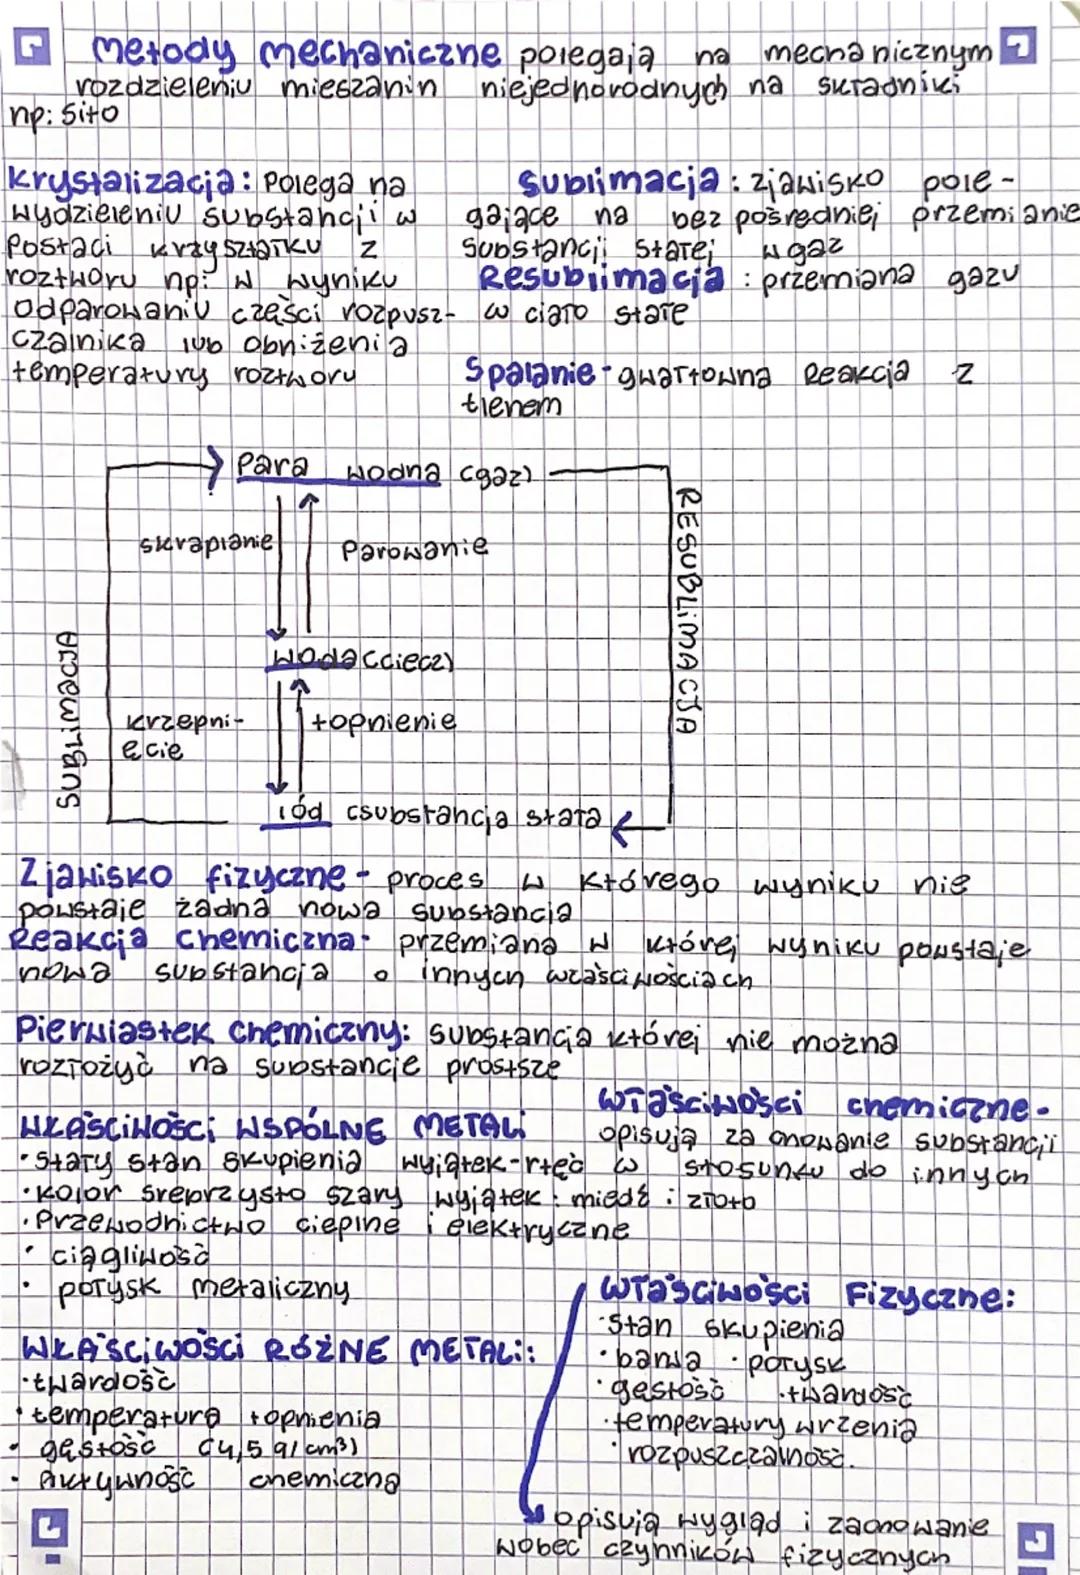 Metody mechaniczne polegają na mechanicznym
rozdzieleniu mieszanin niejednorodnych na składniki
np: Sito
Krystalizacja: Polega na
wydzieleniu substancji w
Postaci kryształku z
roztworu np: w wyniku
odparowaniu części rozpusz-
czalnika lub obniżenia
temperatury roztworu
Sublimacja: zjawisko pole-
gające na bezpośredniej przemianie
substancji stałej w gaz
Resublimacja: przemiana gazu
w ciało stałe
Spalanie - gwałtowna Reakcja z
tlenem
Para wodna (gaz)
skraplanie
Parowanie
woda (ciecz)
krzepni-
ęcie
topnienie
lód (substancja stała
SUBLIMACJA
RESUBLIMACJA
Zjawisko fizyczne - proces w którego wyniku nie
powstaje żadna nowa substancja
Reakcja chemiczna - przemiana w której wyniku powstaje
nowa substancja o innych właściwościach
Pierwiastek chemiczny: substancja której nie można
rozłożyć na substancje prostsze
WŁAŚCIWOŚCI WSPÓLNE METALI
• stały stan skupienia wyjątek - rtęć
• kolor sreprzysto szary wyjątek: miedź i złoto
• Przewodnictwo cieplne i elektryczne
• ciągliwość
• połysk metaliczny
właściwości chemiczne -
opisują zachowanie substancji
w stosunku do innych
WŁAŚCIWOŚCI RÓŻNE METALI:
• twardość
• temperatura topnienia
• gęstość (4,5 g/cm³)
• Aktywność chemiczna
właściwości Fizyczne:
• stan skupienia
• barwa • połysk
• gęstość • twardość
• temperatury wrzenia
• rozpuszczalność.
opisują wygląd i zachowanie
wobec czynników fizycznych